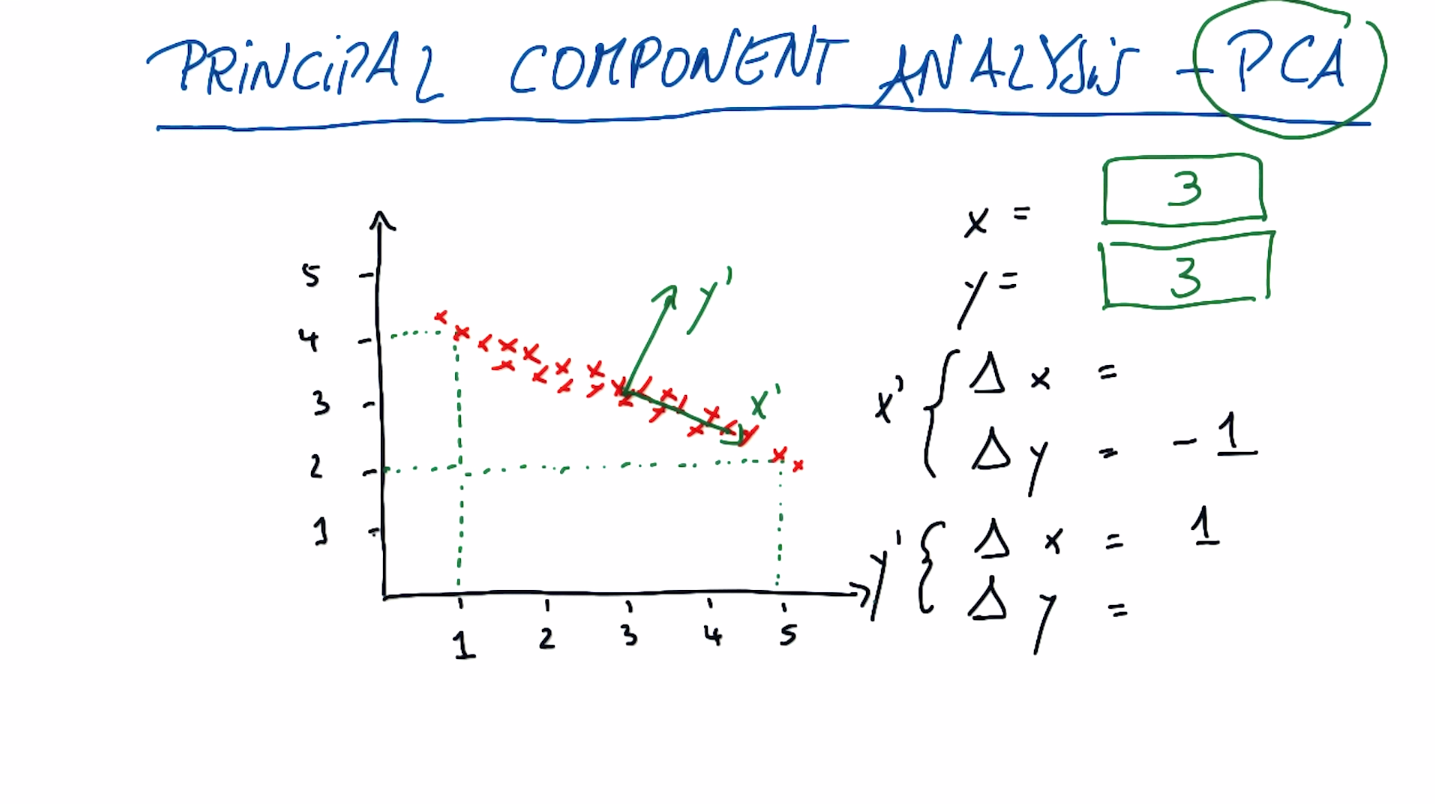 PRINCIPAL COMPONENT ANALYSIS - PCA
x = 3
y = 3
5
4
3
2
1
y'
x'
1 2 3 4 5
x' { Δ x =
Δ y = - 1
y' { Δ x = 1
Δ y =